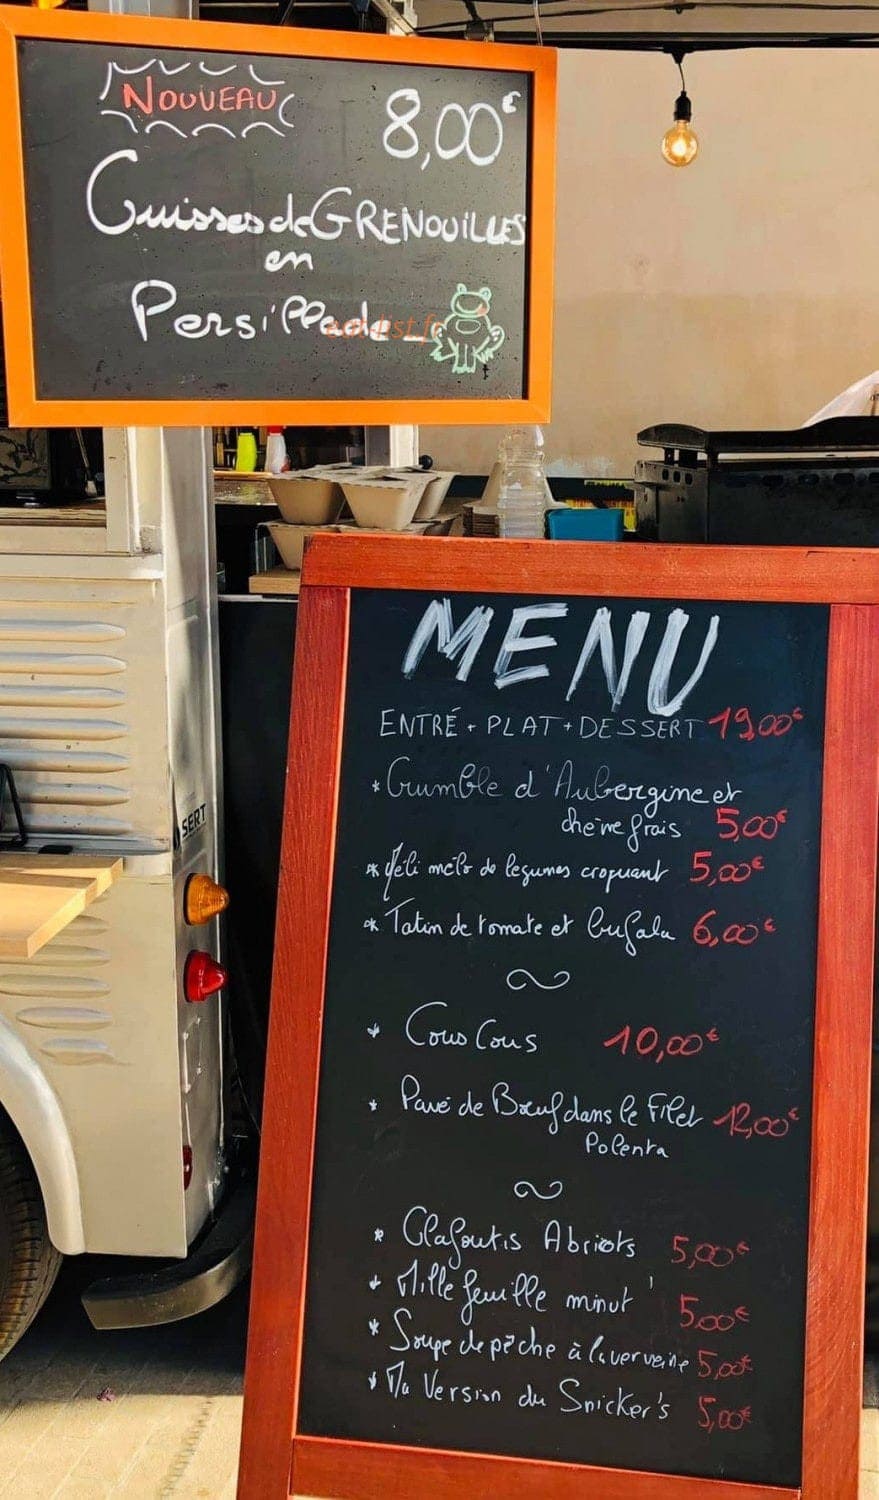 NOUVEAU
8,00€
Cuisses de GRENOUILLES
en
Persillade
eat-list.fr
SERT
MENU
ENTRÉ + PLAT + DESSERT 19,00€
* Crumble d'Aubergine et
chèvre frais 5,00€
* Méli mélo de legumes croquant 5,00€
* Tatin de tomate et bufala 6,00€
* Cous Cous 10,00€
* Pavé de Bœuf dans le Filet 12,00€
Polenta
* Clafoutis Abricots 5,00€
* Mille feuille minut' 5,00€
* Soupe de pêche à la verveine 5,00€
* Ma Version du Snicker's 5,00€